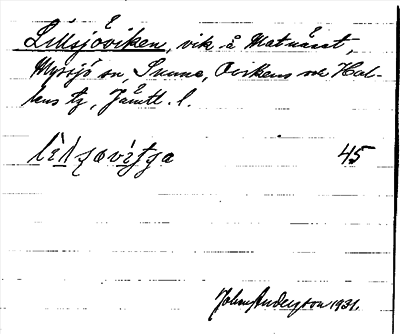 Lillsjöviken, vik å Matnäset,
Myssjö sn, Sunne, Oviken o Hal-
lens tg, Jämtl. l.
45
John Anderzson 1931.